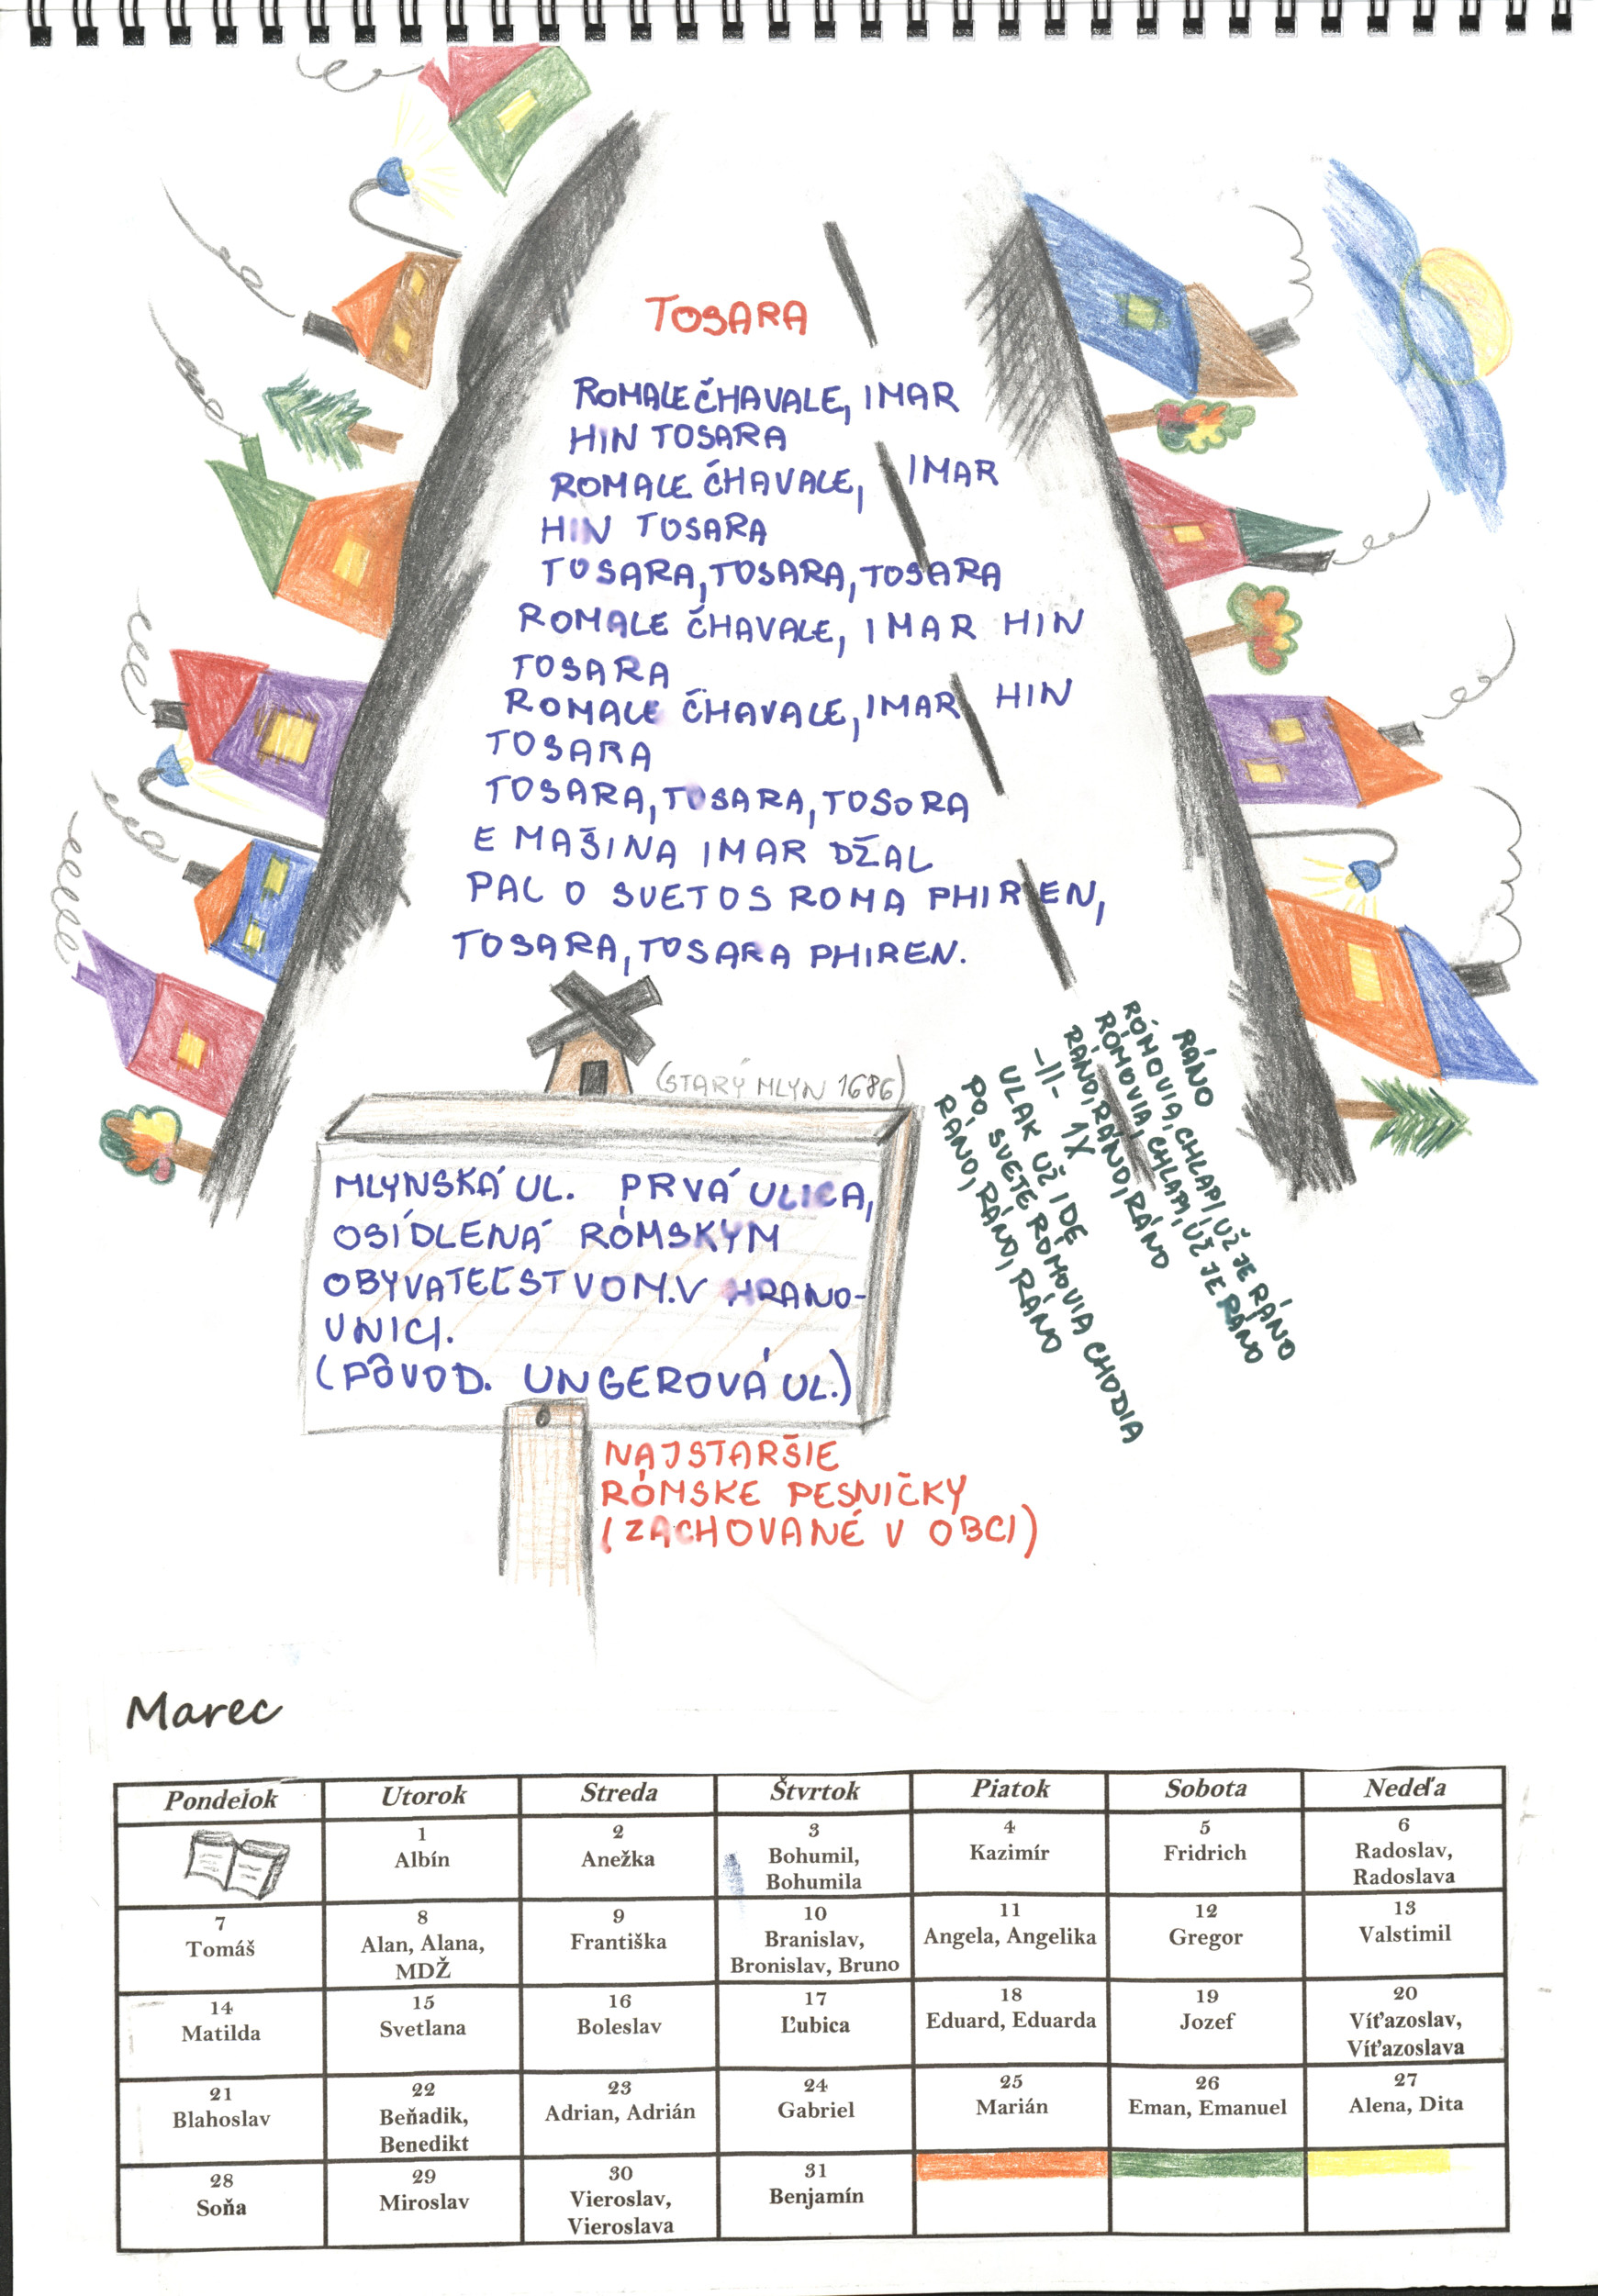 TOSARA
ROMALE ČHAVALE, IMAR
HIN TOSARA
ROMALE ČHAVALE, IMAR
HIN TOSARA
TOSARA, TOSARA, TOSARA
ROMALE ČHAVALE, IMAR HIN
TOSARA
ROMALE ČHAVALE, IMAR HIN
TOSARA
TOSARA, TOSARA, TOSORA
E MAŠINA IMAR DŽAL
PAL O SVETOS ROMA PHIREN,
TOSARA, TOSARA PHIREN.
RÁNO
RÓMOVIA, CHLAPI, UŽ JE RÁNO
RÓMOVIA, CHLAPI, UŽ JE RÁNO
RÁNO, RÁNO, RÁNO
-||- 1X
VLAK UŽ IDE
PO SVETE RÓMOVIA CHODIA
RÁNO, RÁNO, RÁNO
(STARÝ MLYN 1686)
MLYNSKÁ UL. PRVÁ ULICA,
OSÍDLENÁ RÓMSKYM
OBYVATEĽSTVOM.V HRANO-
VNICI.
(PÔVOD. UNGEROVÁ UL.)
NAJSTARŠIE
RÓMSKE PESNIČKY
(ZACHOVANÉ V OBCI)
Marec
Pondelok Utorok Streda Štvrtok Piatok Sobota Nedeľa
1 2 3 4 5 6
Albín Anežka Bohumil, Kazimír Fridrich Radoslav,
Bohumila Radoslava
7 8 9 10 11 12 13
Tomáš Alan, Alana, Františka Branislav, Angela, Angelika Gregor Valstimil
MDŽ Bronislav, Bruno
14 15 16 17 18 19 20
Matilda Svetlana Boleslav Ľubica Eduard, Eduarda Jozef Víťazoslav,
Víťazoslava
21 22 23 24 25 26 27
Blahoslav Beňadik, Adrian, Adrián Gabriel Marián Eman, Emanuel Alena, Dita
Benedikt
28 29 30 31
Soňa Miroslav Vieroslav, Benjamín
Vieroslava